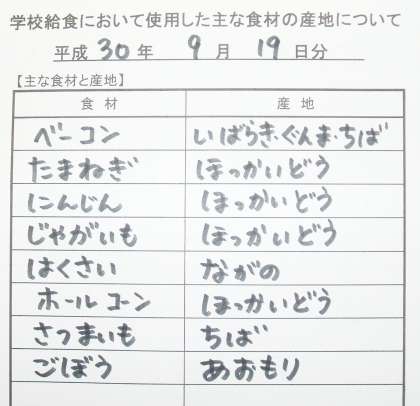 学校給食において使用した主な食材の産地について
平成 30 年 9 月 19 日分
【主な食材と産地】
食材 産地
ベーコン いばらき・ぐんま・ちば
たまねぎ ほっかいどう
にんじん ほっかいどう
じゃがいも ほっかいどう
はくさい ながの
ホールコーン ほっかいどう
さつまいも ちば
ごぼう あおもり